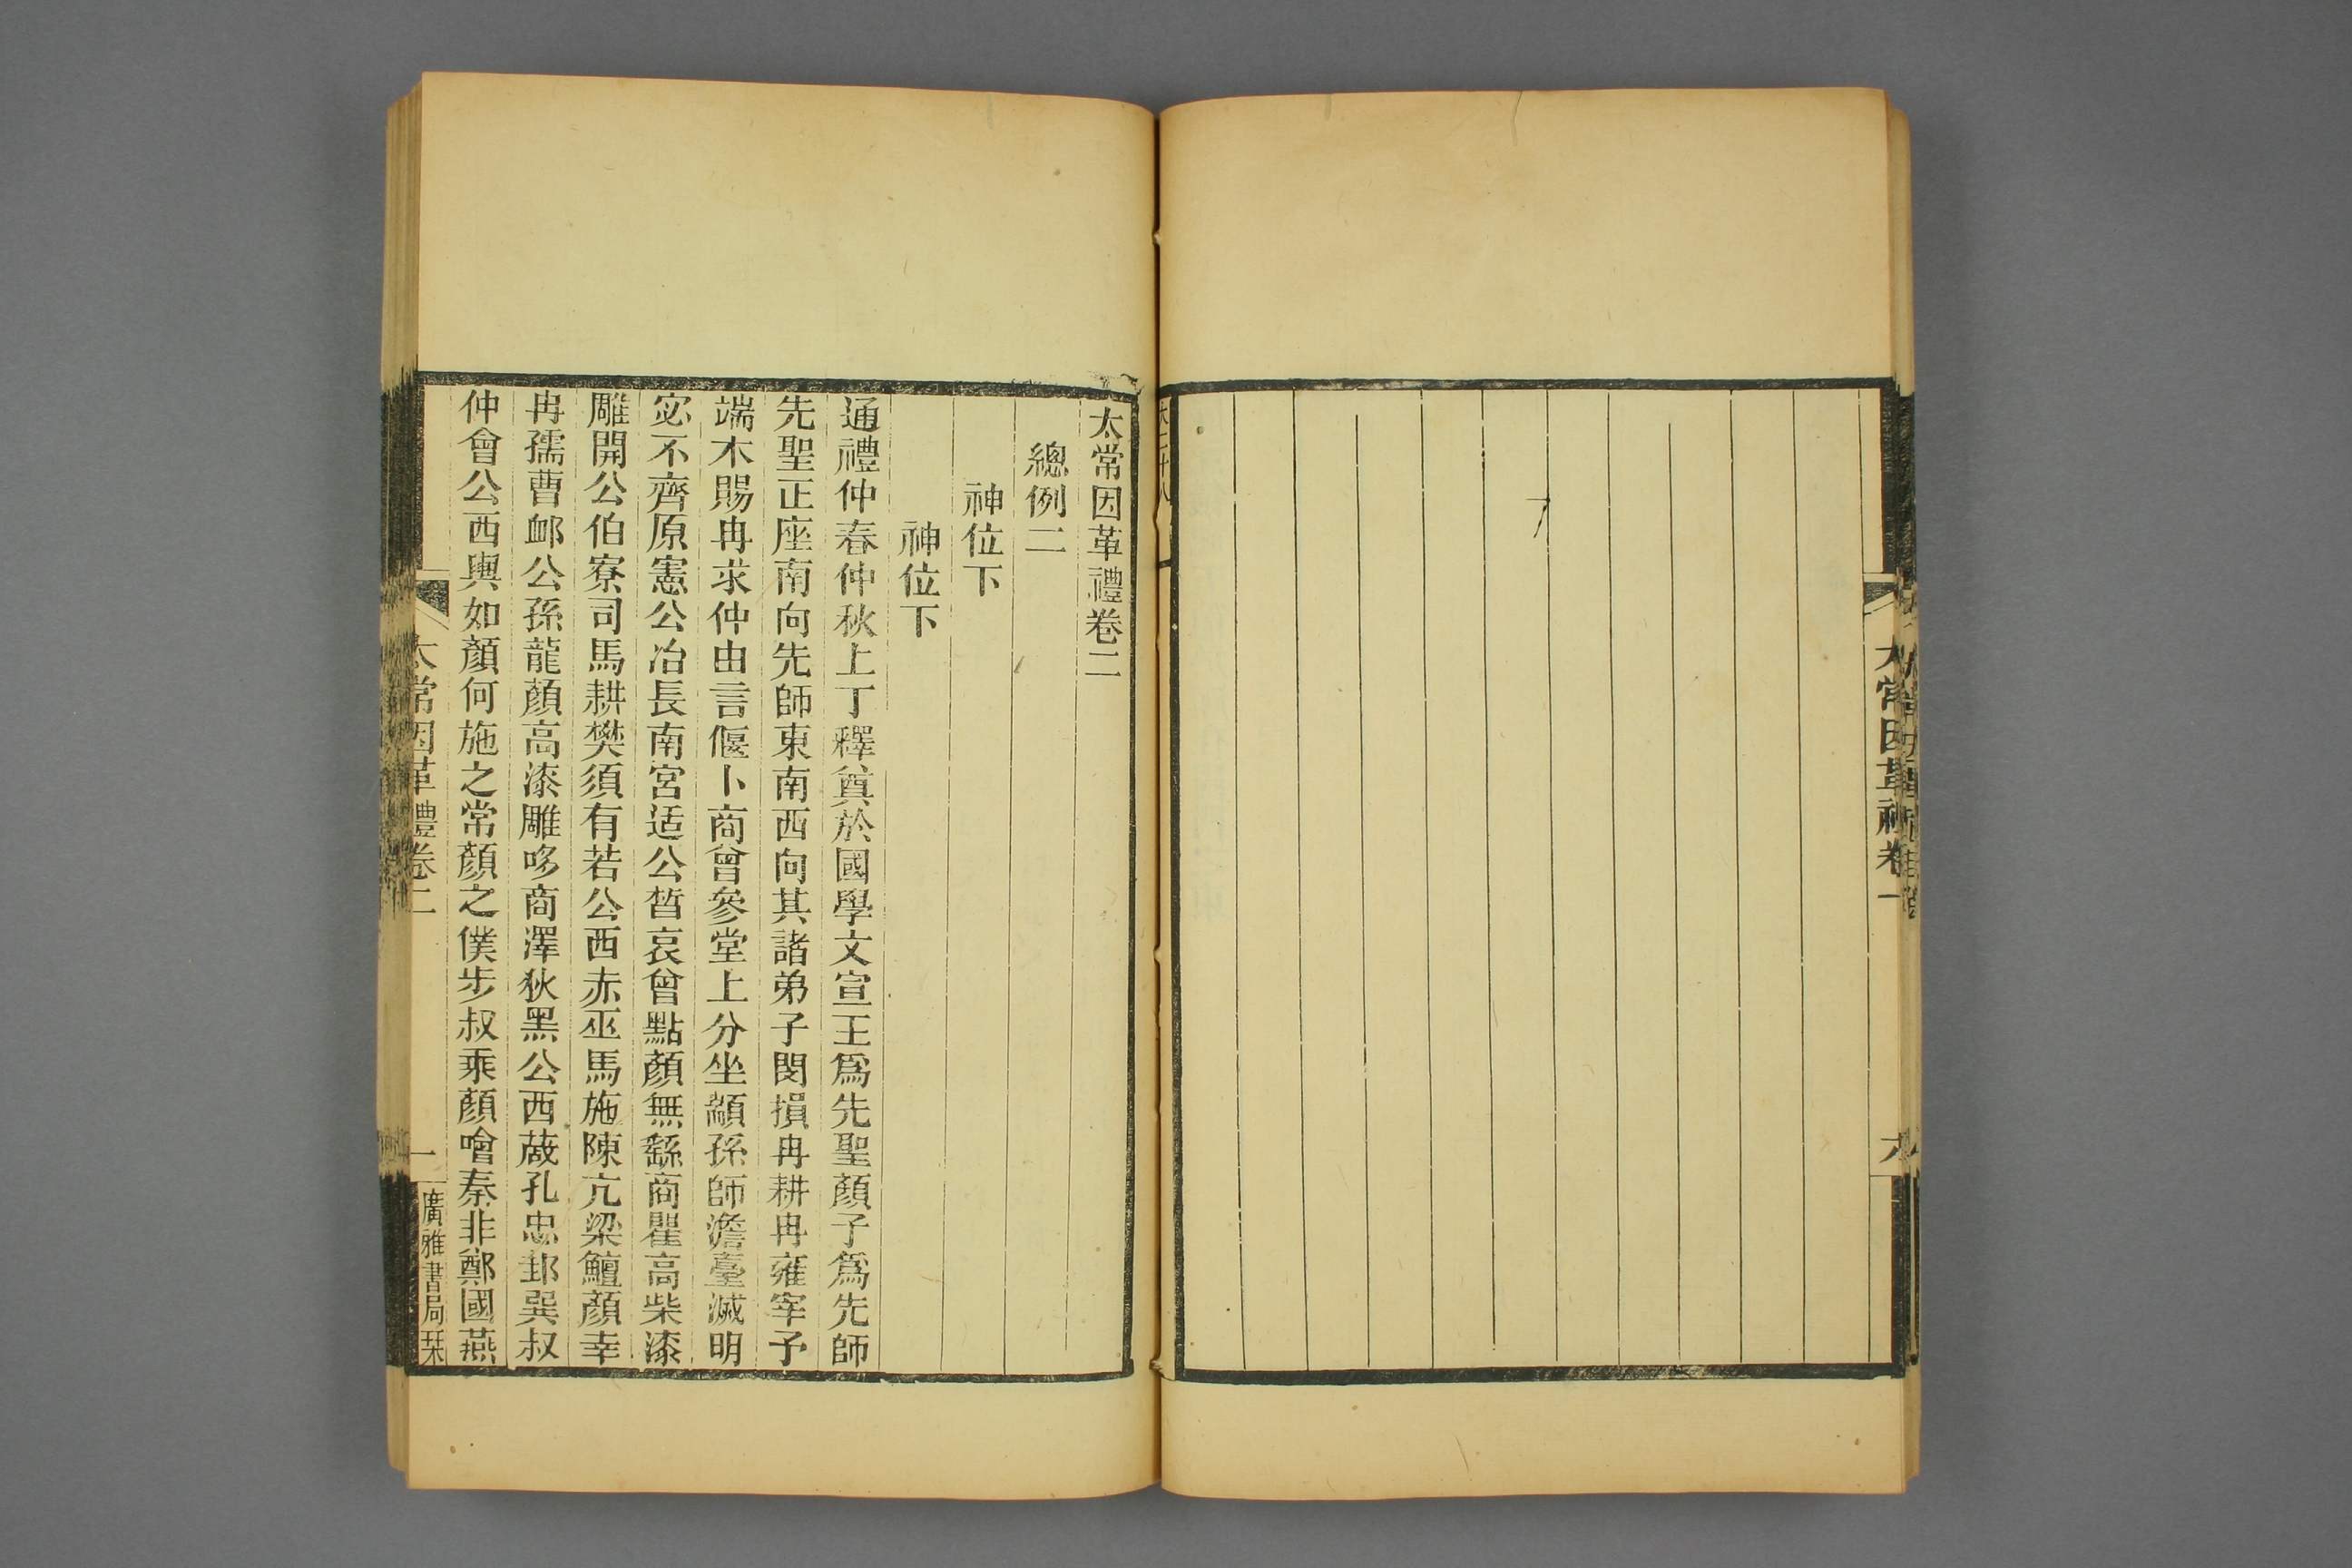 太常因革禮卷一
太常因革禮卷二
總例二
神位下
神位下
通禮仲春仲秋上丁釋奠於國學文宣王爲先聖顏子爲先師
先聖正座南向先師東南西向其諸弟子閔損冉耕冉雍宰予
端木賜冉求仲由言偃卜商曾參堂上分坐顓孫師澹臺滅明
宓不齊原憲公冶長南宮适公晳哀曾點顏無繇商瞿高柴漆
雕開公伯寮司馬耕樊須有若公西赤巫馬施陳亢梁鱣顏幸
冉孺曹卹公孫龍顏高漆雕哆商澤狄黑公西蒧孔忠邽巽叔
仲會公西輿如顏何施之常顏之僕步叔乘顏噲秦非鄭國燕
太常因革禮卷二
一
廣雅書局栞